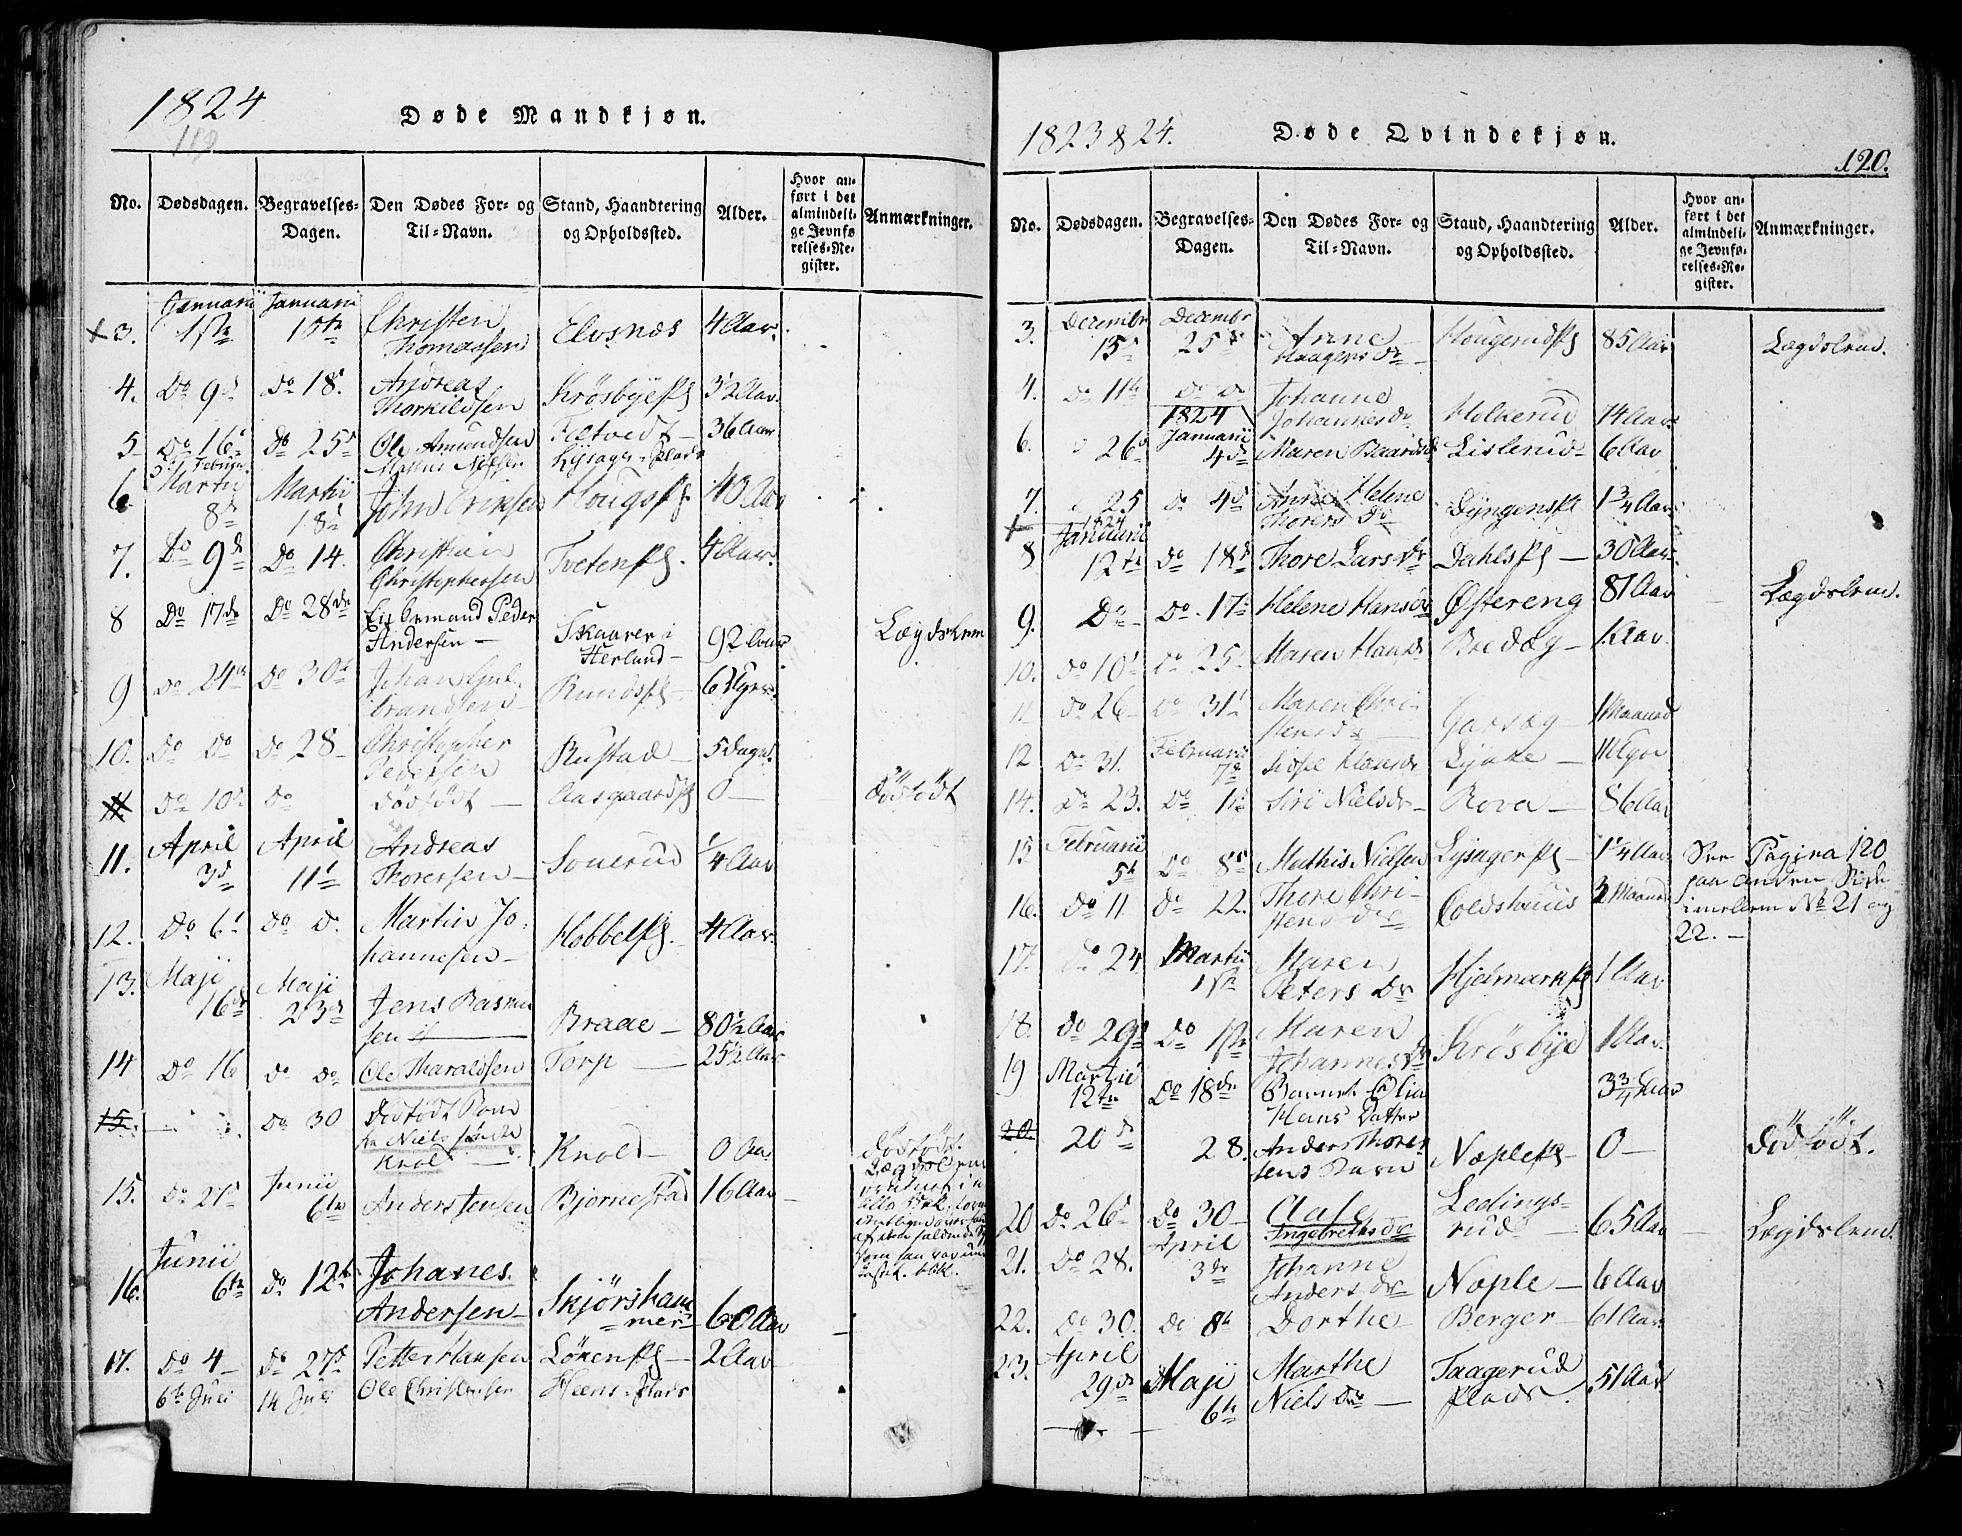 1824
Døde Mandkjøn.
No. Dødsdagen. Begravelses-Dagen. Den Dødes For- og Til-Navn. Stand, Haandtering og Opholdssted. Alder. Hvor anført i det almindelige Jevnførelses-Register. Anmærkninger.
3. Januarii 1ste Januarii 18de Christen Thomassen Elvsnæs 4 Aar.
4. Do 9d Do 18. Andreas Thorkildsen Krösbyepl 3½ Aar.
5 Do 16 Do 25d Ole Amundsen Tiltvedt 36 Aar
Lysager-plads
6 Martii 8d Martii 18 John Eriksen Hougspl. 40 Aar
7. Do 9d Do 14. Christian Christophersen Tvetenpl. 4 Aar.
8 Do 17de Do 28de Peder Andersen Skaarer i Herland 92 Lægdslem
9 Do 24de Do 30 Johan Gulbrandsen Rundspl 6 Uger.
10. Do Do Do 28 Christopher Pedersen Rustad 5 Dage.
11. Do 10d Do dödfödt Aasgaardspl 0 dödfödt
11. April 3d April 11 Andreas Thoresen Sonerud ¼ Aar
12. Do 6 Do Do Martin Johannesen Hobbelpl. 4 Aar.
13. Maji 16de Maji 23d Jens Rasmusen Braae 80½ Aar
14 Do 16 Do Do Ole Haraldsen Torp 25½ Aar
15. Do 30 Dödfödt Knold Knold 0 Aar dödfödt.
15. Do 27d Junii 6te Anders Jensen Bjornestad 16 Aar
16. Junii 6te Do 12te Johanes Andersen Skjörshammer 60 Aar
17. Do 4 Do 27d Petter Hansen Lökenpl 2 Aar
6te Juli 14 Juli Ole Christensen Heens-plads
1823 & 24.
Døde Qvindekjøn.
120.
No. Dødsdagen. Begravelses-Dagen. Den Dødes For- og Til-Navn. Stand, Haandtering og Opholdssted. Alder. Hvor anført i det almindelige Jevnførelses-Register. Anmærkninger.
3. Decembr 15d Decembr 25d Anne Haagens Dr Hougerudpl 85 Aar Lægdslem.
4. Do 11te Do Do Johanne Johannesdr Molkerud 14 Aar.
6. 26d 1824 Januarii 4d Maren Baardsdr Lislerud 6 Aar
7. 25 Do 4d Anne Helene Thorers Dr Dyngenspl 1¾ Aar
8 1824 Januarii 12te Do 18d Thore Larsdr Dahlspl 30 Aar.
9. Do Do 17 Helene Hansdr Östereng 87 Aar Lægdslem.
10. Do 10 Do 25. Maren Hansdr 1 Aar.
11 Do 26 Do 31 Maren Christensdr 1 Maaned
12 Do 31. Februarii 7d Hansdr 11 Uger
14. Do 23. Do 1ste Siri Nielsdr Rova 86 Aar
15 Februarii 5te Do 8d Mathis Nielsen Lysagerpl 1¼ Aar See Pagina 120
paa anden Side
imellem No 21 og
22.
16. Do 11 Do 22. Thore Christensdr Coldshuus 3 Maaned
17. Do 24 Martii 1ste Maren Peters Dr Hjelmarkpl 1 Aar
18. Do 29d Do 1ste Maren Johannes Dr Krösbye 1 Aar.
19 Martii 12te Do 18de Barnet Olia Hans Datter 3¾ Aar
20. 20d 28. Anders Thoresens Barn Næplepl 0 dödfödt.
20 Do 26d Do 30 Aase Ingebrethsdr Ledingsrud 65 Aar Lægdslem.
21. Do 28. April 3de Johanne Andersdr Næple 6 Aar
22. Do 30. Do 8te Dorthe Berger 61 Aar.
23. April 29de Maji 6te Marthe Niels Dr Taagerud plads. 51 Aar